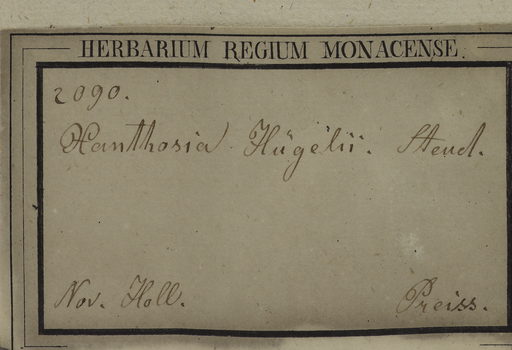 HERBARIUM REGIUM MONACENSE.
2090.
Xanthosia Hügelii. Steud.
Nov. Holl. Preiss.